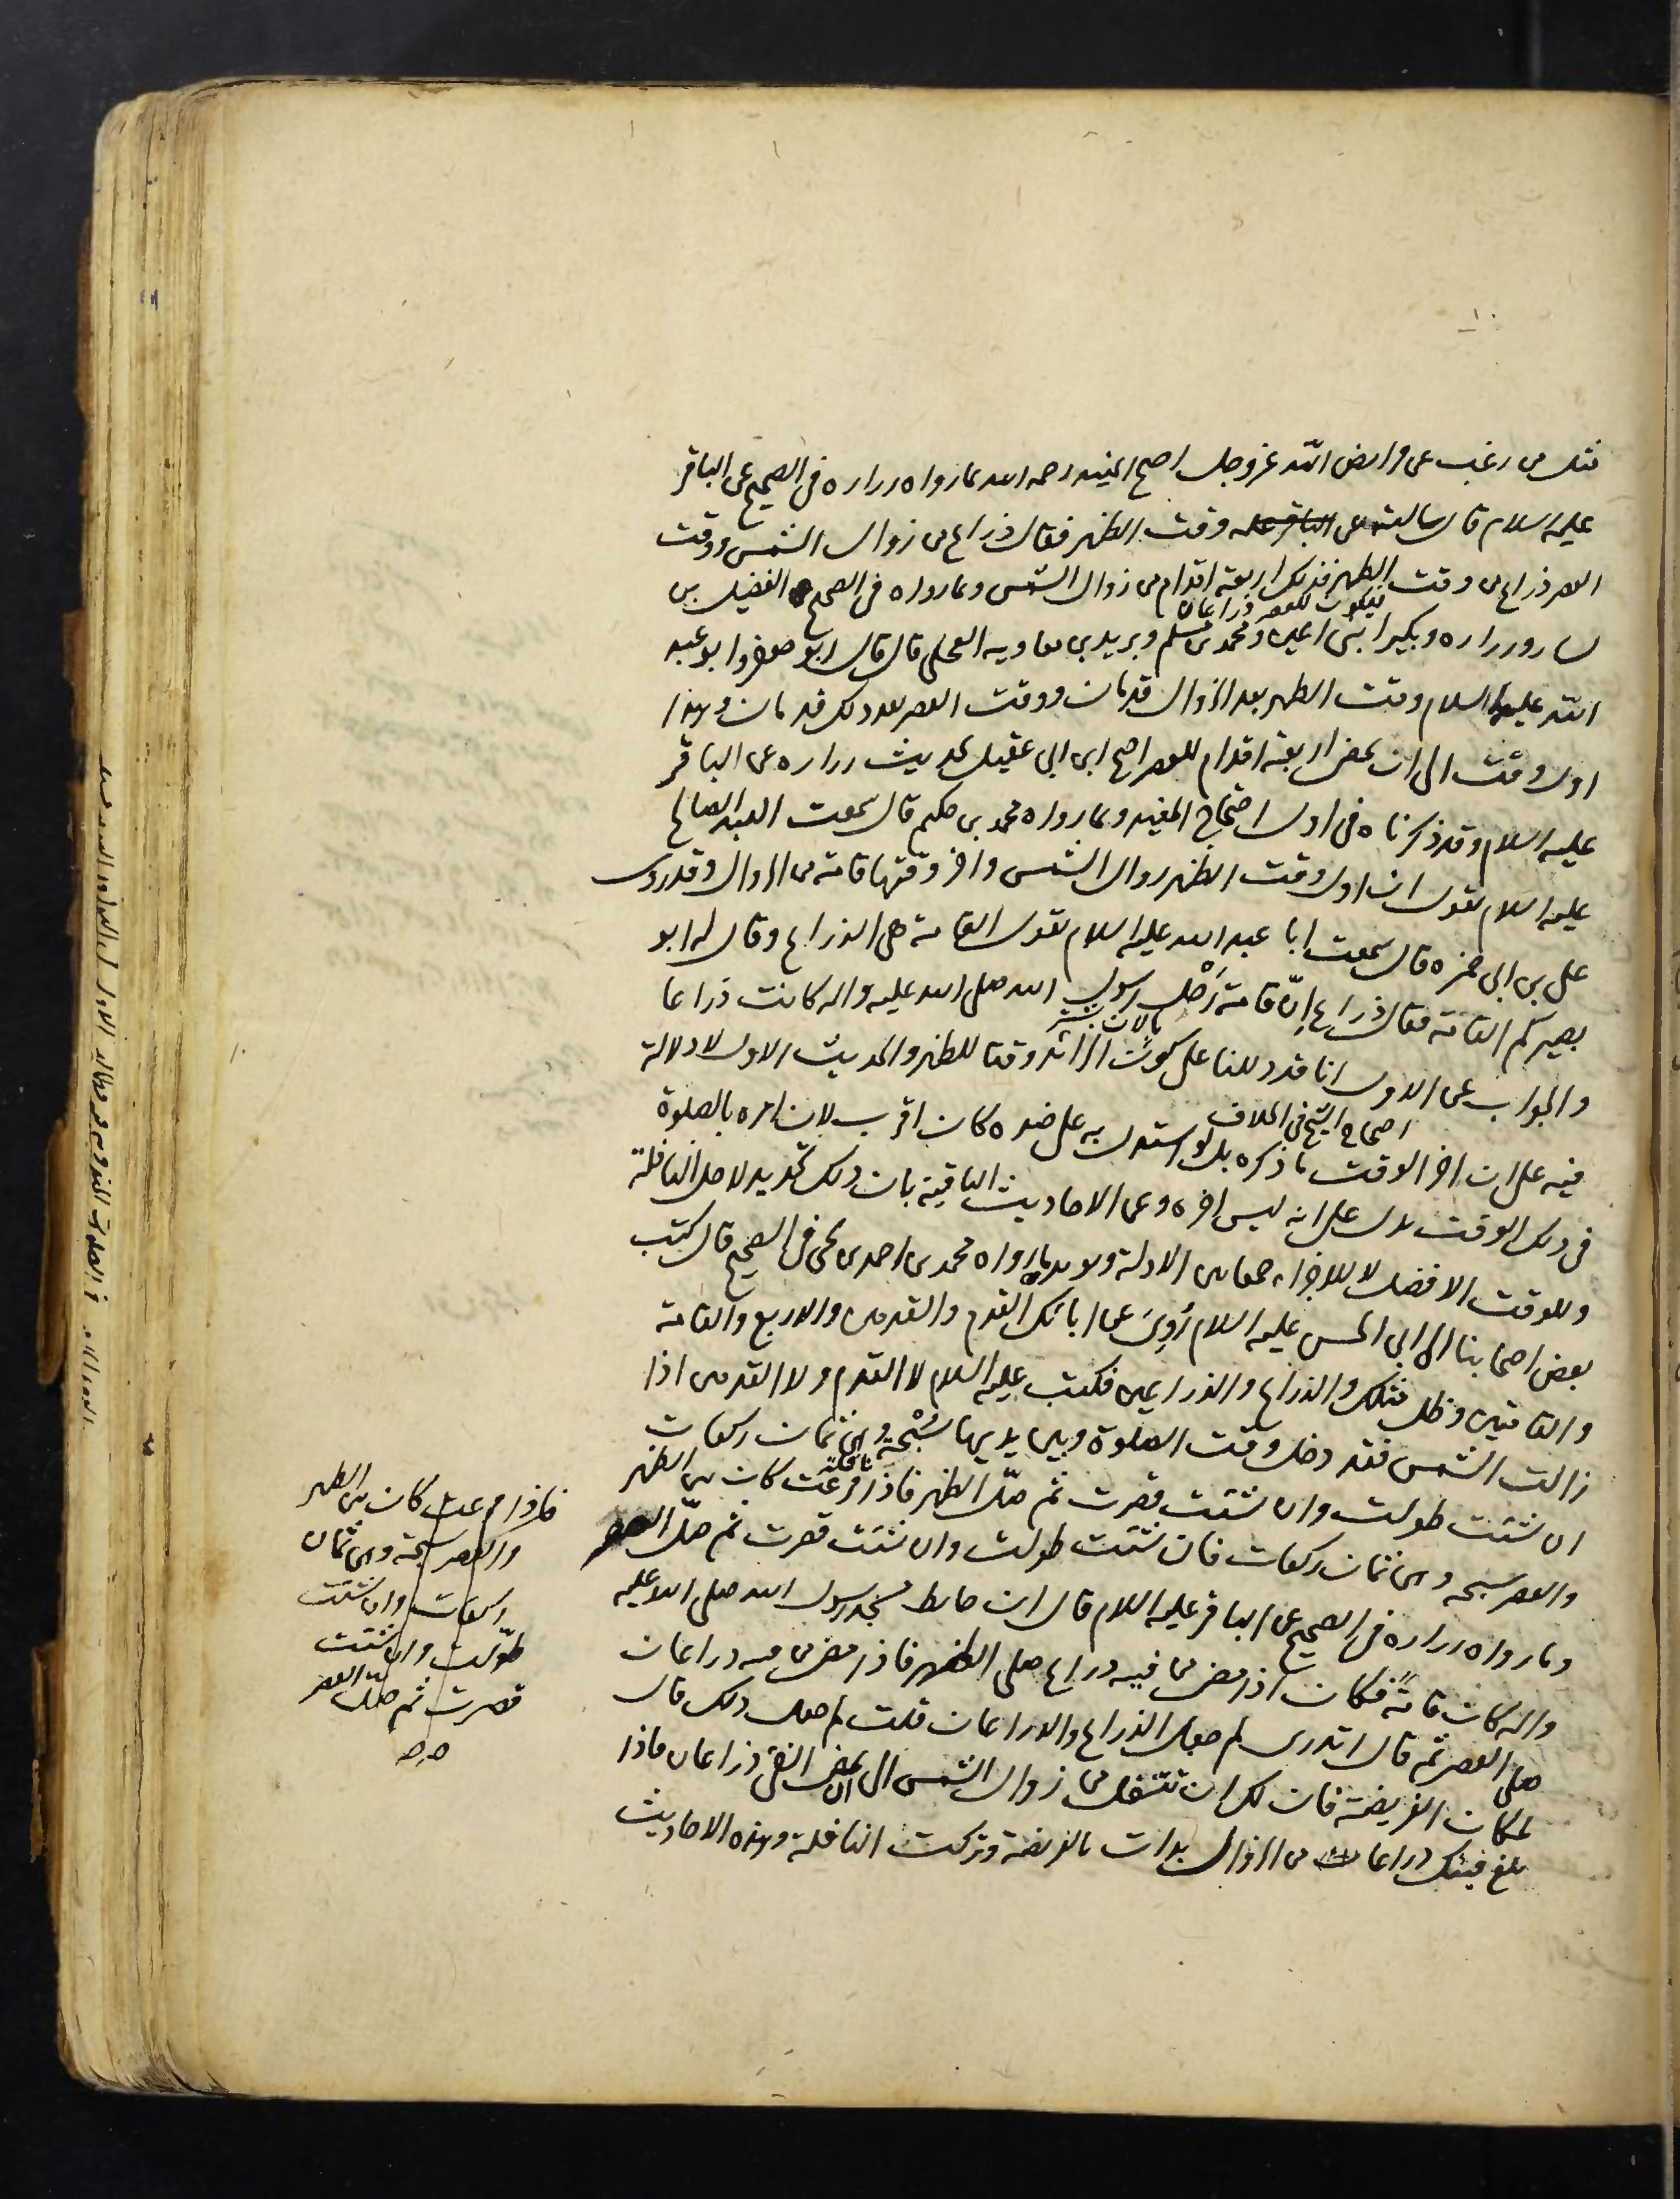 مثل من رغب عن فرايض الله عز وجل احتج المفيد رحمه الله بما رواه زراره في الصحيح عن الباقر
عليه السلام قال سالته عن وقت الظهر فقال ذراع من زوال الشمس ووقت
العصر ذراع من وقت الظهر فذلك اربعة اقدام من زوال الشمس وبما رواه في الصحيح الفضيل بن
فيكون للعصر ذراعان
يسار وزراره وبكير ابنى اعين ومحمد بن مسلم وبريد بن معاويه العجلى قال قال ابو جعفر وابو عبد
الله عليهما السلام وقت الظهر بعد الزوال قدمان ووقت العصر بعد ذلك قدمان وهذا
اول وقت الى ان يمضى اربعة اقدام للعصر احتج ابن ابي عقيل بحديث زراره عن الباقر
عليه السلام وقد ذكرناه في اول احتجاج المفيد وبما رواه محمد بن حكيم قال سمعت العبد الصالح
عليه السلام يقول ان اول وقت الظهر زوال الشمس واخر وقتها قامة من الزوال وقد روى
على بن ابي حمزه قال سمعت ابا عبد الله عليه السلام يقول القامة هى الذراع وقال له ابو
بصير كم القامة فقال ذراع انّ قامة رَحْل رسول الله صلى الله عليه واله كانت ذراعا
والجواب عن الاول انا قد دللنا على كون الزائد وقتا للظهر والحديث الاول لا دلالة
احتجاج الشيخ في الخلاف
فيه على ان اخر الوقت ما ذكره بل لو استدل به على ضده كان اقرب لان امره بالصلوة
في ذلك الوقت يدل على انه ليس اخره وعن الاحاديث الباقية بان ذلك تحديد لاجل النافلة
وللوقت الافضل لا للاجزاء جمعا بين الادلة ويؤيده ما رواه محمد بن احمد بن يحيى في الصحيح قال كتب
بعض اصحابنا الى ابي الحسن عليه السلام رُوِىَ عن ابائك القدم والقدمين والاربع والقامة
والقامتين وظل مثلك والذراع والذراعين فكتب عليه السلام لا القدم ولا القدمين اذا
زالت الشمس فقد دخل وقت الصلوة وبين يديها سُبْحة وهى ثمان ركعات
نافلة
ان شئت طولت وان شئت قصرت ثم صلّ الظهر فاذا فرغت كان بين الظهر
والعصر سبحه وهى ثمان ركعات فان شئت طولت وان شئت قصرت ثم صلّ العصر
وما رواه زراره في الصحيح عن الباقر عليه السلام قال ان حايط مسجد رسول الله صلى الله عليه
واله كان قامةً فكان اذا مضى من فيئه ذراع صلى الظهر فاذا مضى من فيئه ذراعان
صلى العصر ثم قال اتدرى لم جعل الذراع والذراعان قلت لم جعل ذلك قال
لمكان الفريضة فان لك ان تتنفل من زوال الشمس الى ان يمضى الفئ ذراعان فاذا
بلغ فيئك ذراعان من الزوال بدات بالفريضة وتركت النافلة وهذه الاحاديث
فاذا فرغت كان بين الظهر
والعصر سبحة وهى ثمان
ركعات وان شئت
طوّلت وان شئت
قصرت ثم صلّ العصر
صح